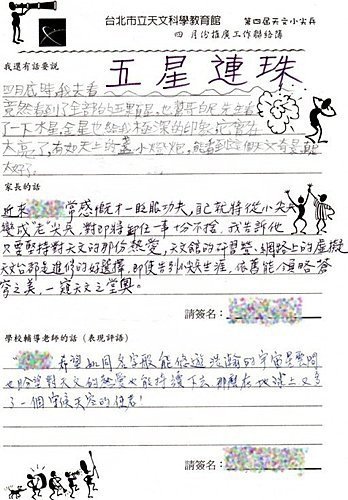 台北市立天文科學教育館 第四屆天文小尖兵
四 月份推廣工作聯絡簿
我還有話要說
五星連珠
四月底時我去看
竟然看到了全部的五顆星,也
了一下水星,金星也給我極深的印象,它實在
太亮了,有如天上的一盞小燈炮,能看到這個天文奇景
太好了
家長的話
近來 常感慨才一眨眼功夫,自己就將從小尖
變成老尖兵,對即將卸任一事十分不捨。我告訴他
只要堅持對天文的那份熱愛,天文館的研習營、網路上的虛擬
天文台都是進修的好選擇,即使告別小尖兵生涯,依舊能領略蒼
穹之美,一窺天文之堂奧。
請簽名:
學校輔導老師的話(表現評語)
希望如同名字般能悠遊浩瀚的宇宙星空間
也盼望對天文的熱愛也能持續下去 那麼在地球上又多
了一個守候天空的使者!
請簽名: